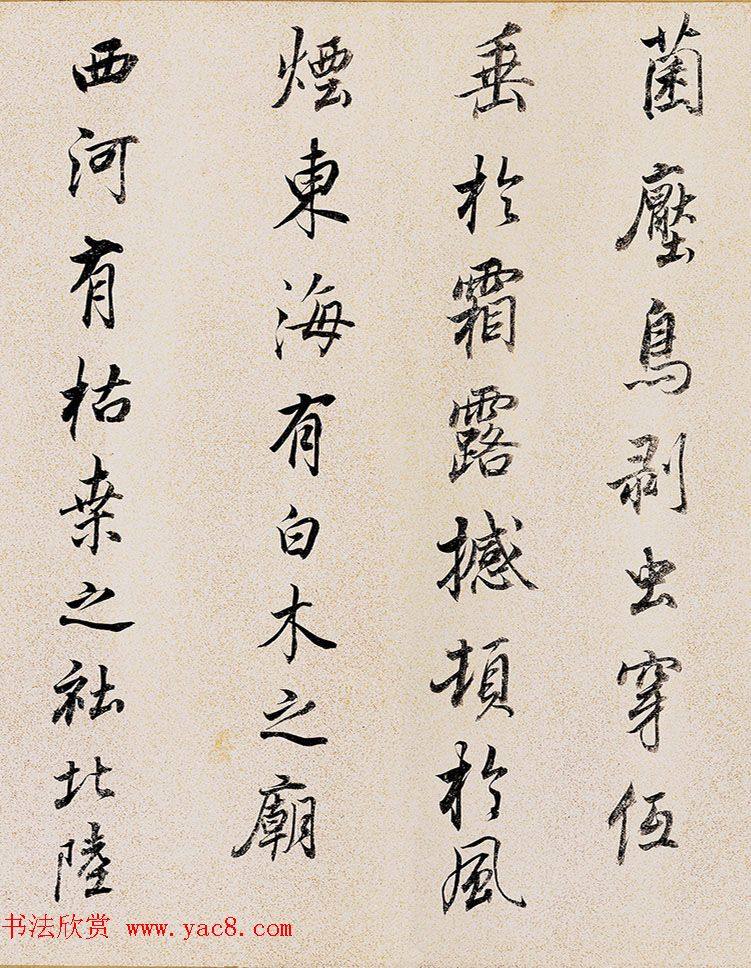 菌壓鳥剥虫穿伍
垂於霜露撼頓於風
煙東海有白木之廟
西河有枯桒之社北陸
书法欣赏 www.yac8.com